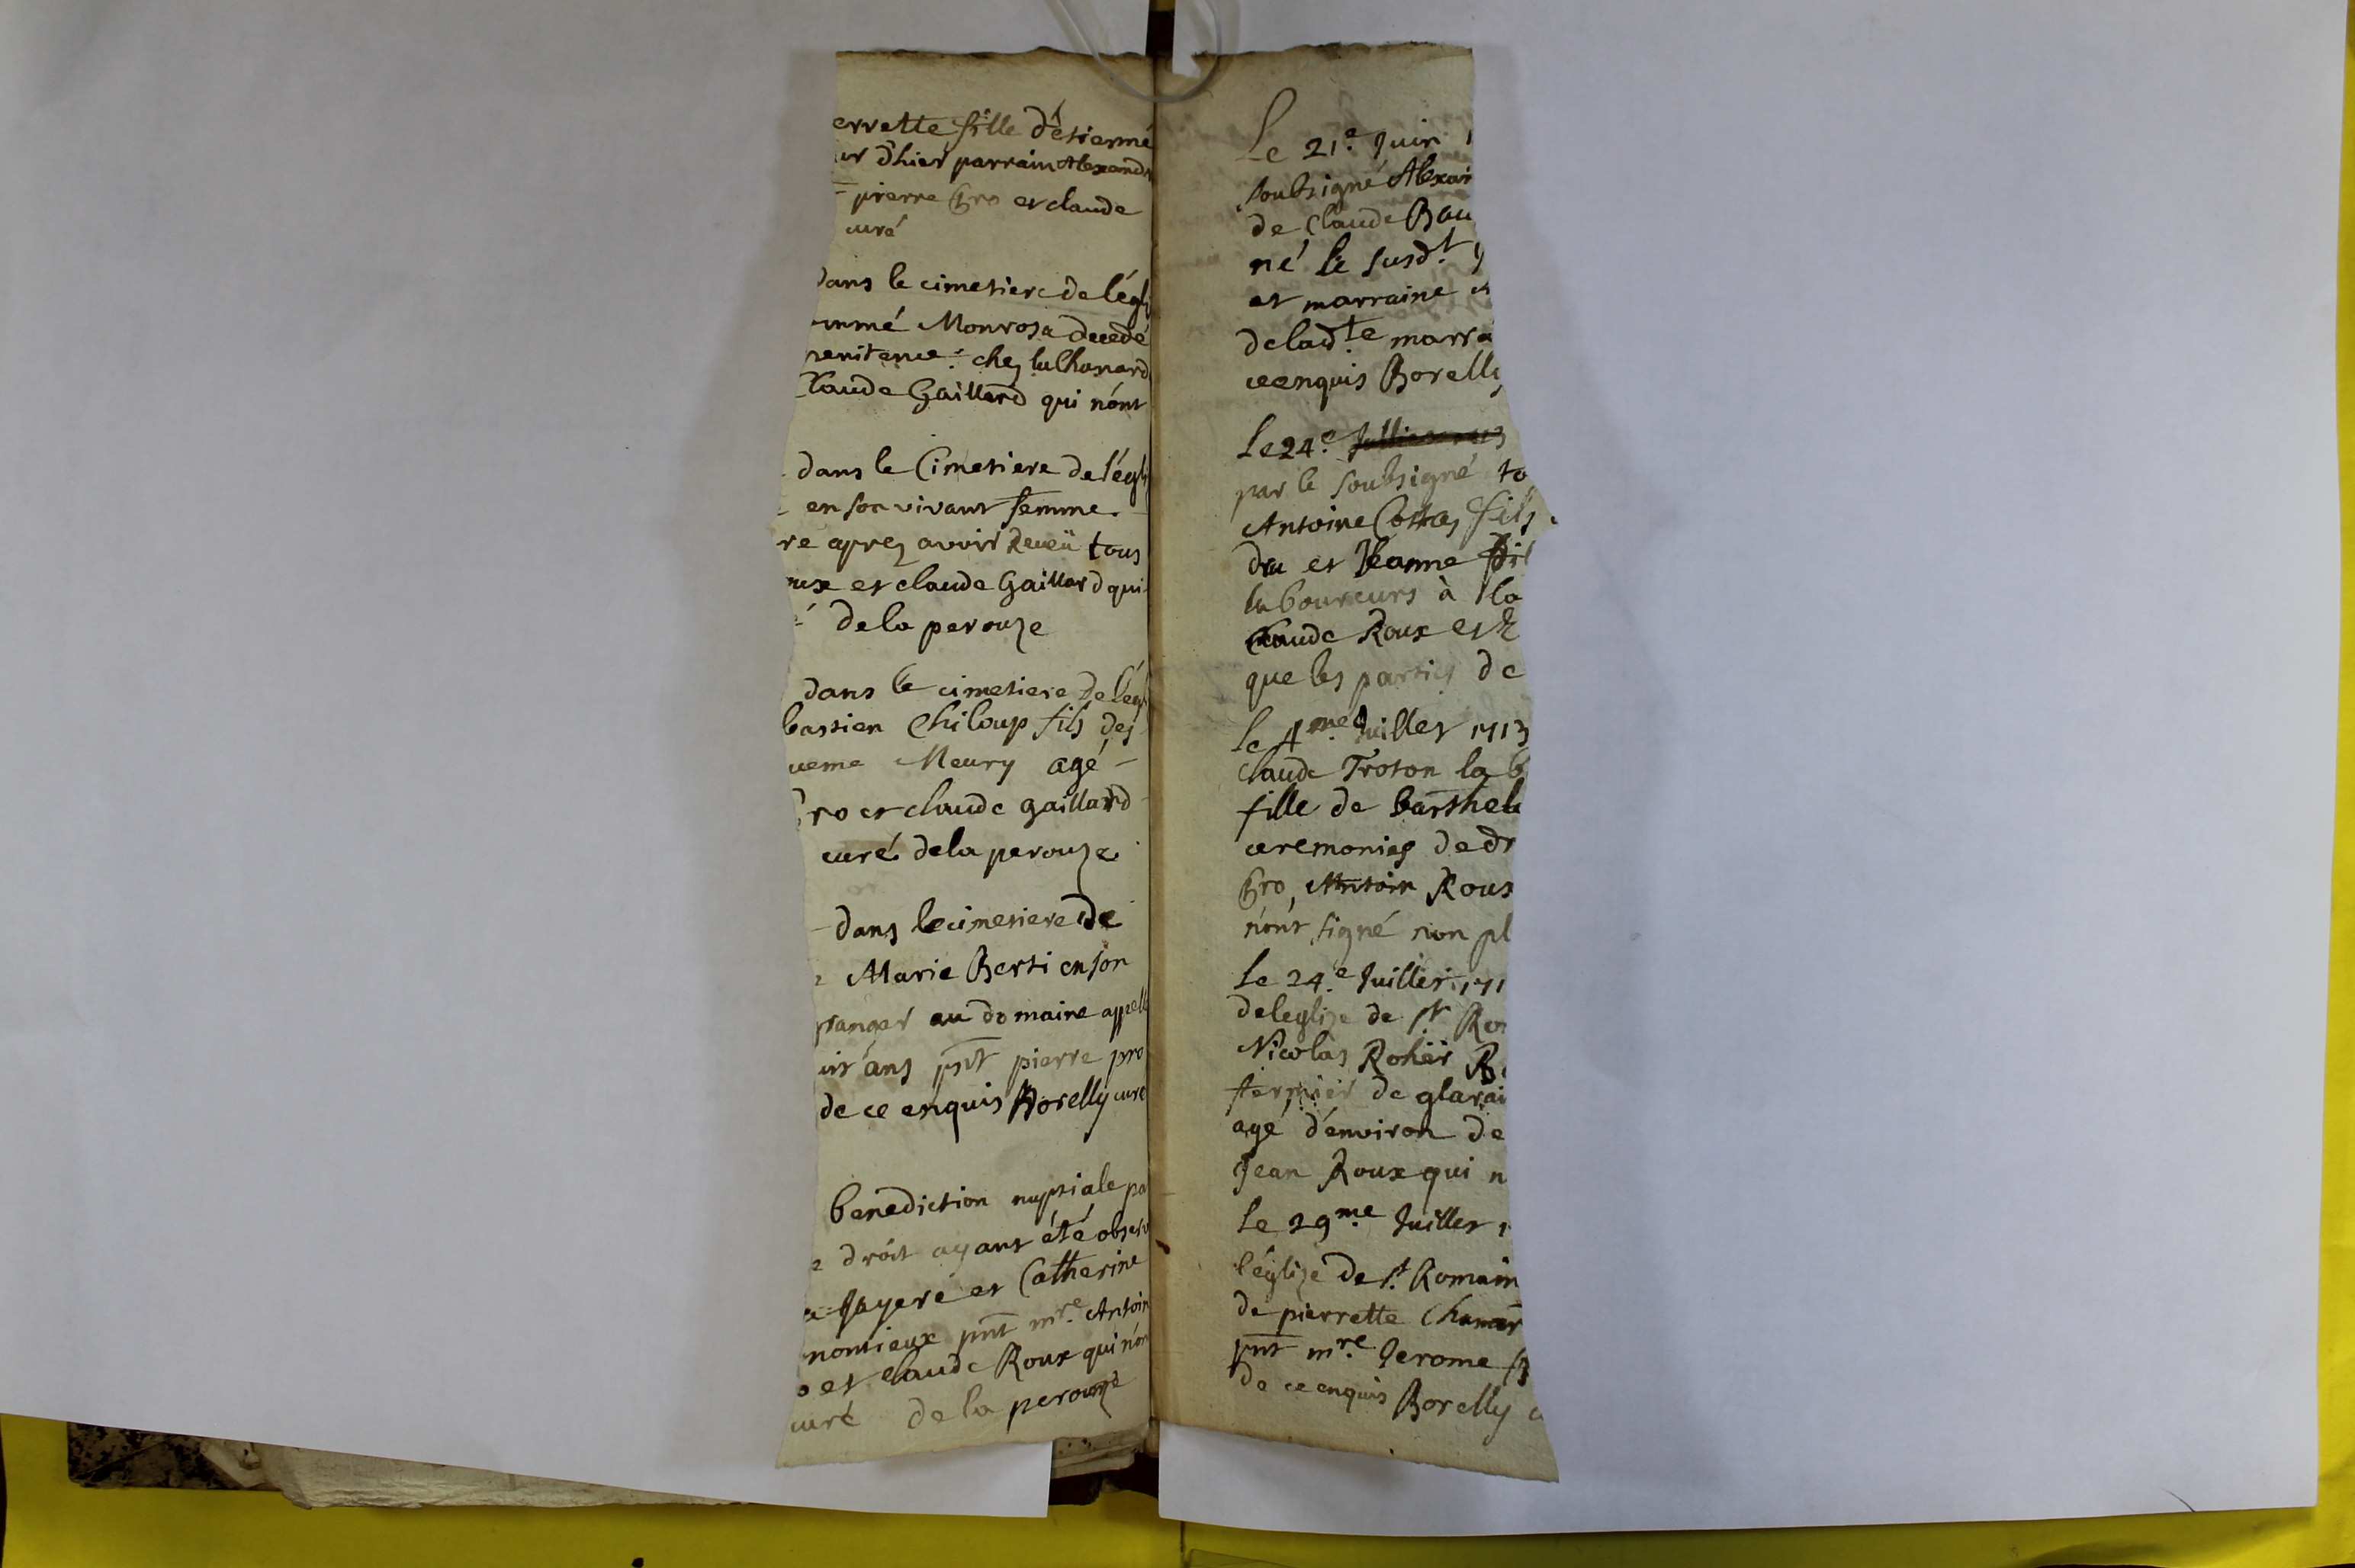 errette fille d'éstienne
ur d'hier parrain Alexandr
pierre Gro et claude
curé
dans le cimetiere de l'égli
ommé Monrosa decedé
penitence: chez lulhonard
Claude Gaillard qui n'ont
dans le Cimetiere de l'égli
en son vivant femme
re aprez avoir Receü tous
oux et claude Gaillard qui
de la perouze
dans le cimetiere de l'égl
bastien Chiloup fils des
ueme Meury agé
Gro et claude gaillard
curé de la perouze
dans le cimetiere de
Marie Berti en son
granger au domaine appellé
uit ans pnt pierre pro
de ce enquis Borelly curé
benediction nuptiale pa
e droit ayant été observ
Fayere et Catherine
nomieux pnt mre. Antoin
o et claude Roux qui n'on
curé de la perouze
Le 21e. Juin 1
soubsigné Alexan
de Claude Bau
né le susdt.
et marraine
de ladte marra
ce enquis Borelly
Le 24e.
par le soubsigné to
Antoine Costaz fils
dru et Jeanne
laboureurs à la
Claude Roux et
que les parties de
Le 4me. Juillet 1713
Claude Troton lab
fille de barthele
ceremonies de dr
Gro, Antoin Roux
n'ont signé non pl
Le 24e. Juillet 171
de leglize de st Ro
Nicolas Rohër
fermier de glarai
agé d'environ de
Jean Roux qui n
Le 29me Juillet 1
l'églize de st. Romain
de pierrette Chamar
pnt mre. Jerome
de ce enquis Borelly c